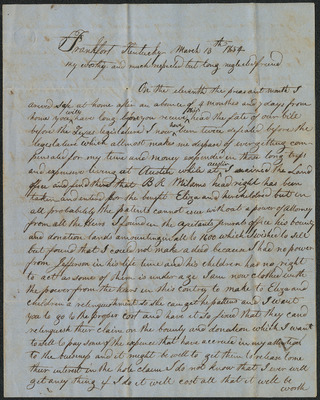 Frankfort Kentucky March 13th 1854
My worthy and much respected but long neglected friend
On the eleventh the preasant month I
arived safe at home after an absence of 4 months and 7 days from
home you will have long before you receive this head the fate of our bill
before the Texas legislature I now have been twice defeated before the
legislature which allmost make me dispare of ever getting com
pensated for my time and money expended in those long trips
and expensive living at Austin while at Austin I examined the Land
office and find there that B R Milams head right has been
taken and for the benyfit Eliza and her children but
all probability the patente cannot issue without a power of attorney
from all the heirs I found in the Agitants Jenerals office his bounty
and donation lands amounting in all to 1600 which I wished to sell
but found that I could not make a deed because I had no power
from Jefferson in his life time and his children has no right
to act as some of them is under age I am now clothed with
the power from the hears in this contry to make to Eliza and
children a relinquishment so she can get the patent and I want
you to go to the proper cost and have it so fixed that they can
relinquish their claim on the bounty and donation which I want
to sell to pay some of the expense that have accrued in my attention
to the buisness and it might be well to get them to relinquish
their interest in the hole claim I do not know that I ever will
get any thing & I do it will cost all that it will be
worth